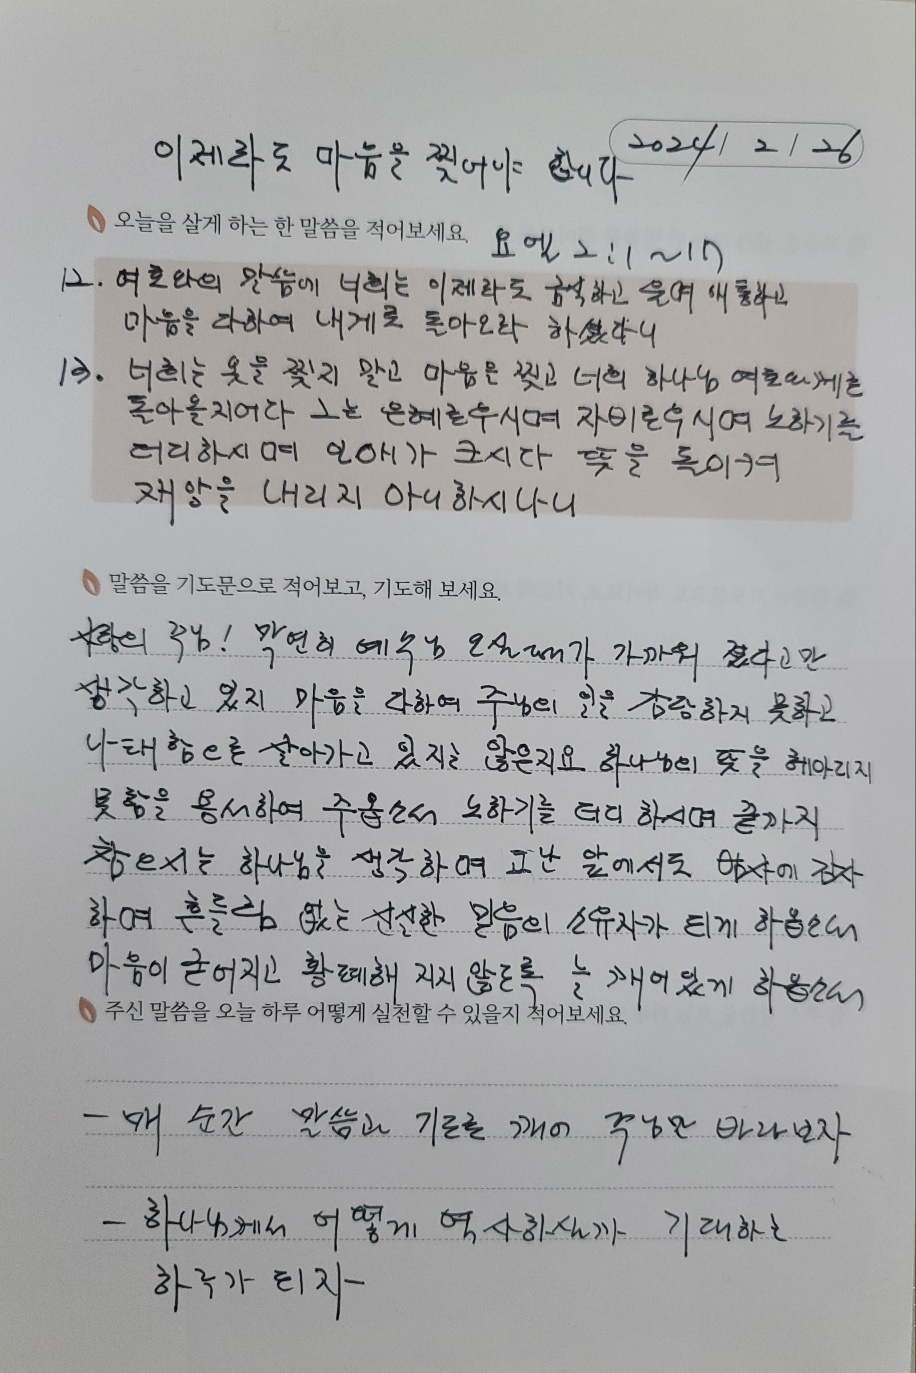 2024 / 2 / 26
이제라도 마음을 찢어야 합니다
오늘을 살게 하는 한 말씀을 적어보세요.
요엘 2:1~17
12. 여호와의 말씀에 너희는 이제라도 금식하고 울며 애통하고
마음을 다하여 내게로 돌아오라 하셨나니
13. 너희는 옷을 찢지 말고 마음을 찢고 너희 하나님 여호와께로
돌아올지어다 그는 은혜로우시며 자비로우시며 노하기를
더디하시며 인애가 크시다 뜻을 돌이켜
재앙을 내리지 아니하시나니
말씀을 기도문으로 적어보고, 기도해 보세요.
사랑의 주님! 막연히 예수님 오실때가 가까워 졌다고만
생각하고 있지 마음을 다하여 주님의 일을 감당하지 못하고
나태함으로 살아가고 있지는 않은지요 하나님의 뜻을 헤아리지
못함을 용서하여 주옵소서 노하기를 더디 하시며 끝까지
참으시는 하나님을 생각하며 고난 앞에서도 감사
하며 흔들림 없는 신실한 믿음의 소유자가 되게 하옵소서
마음이 굳어지고 황폐해 지지 않도록 늘 깨어있게 하옵소서
주신 말씀을 오늘 하루 어떻게 실천할 수 있을지 적어보세요.
- 매 순간 말씀과 기도로 깨어 주님만 바라보자
- 하나님께서 어떻게 역사하실까 기대하는
하루가 되자-